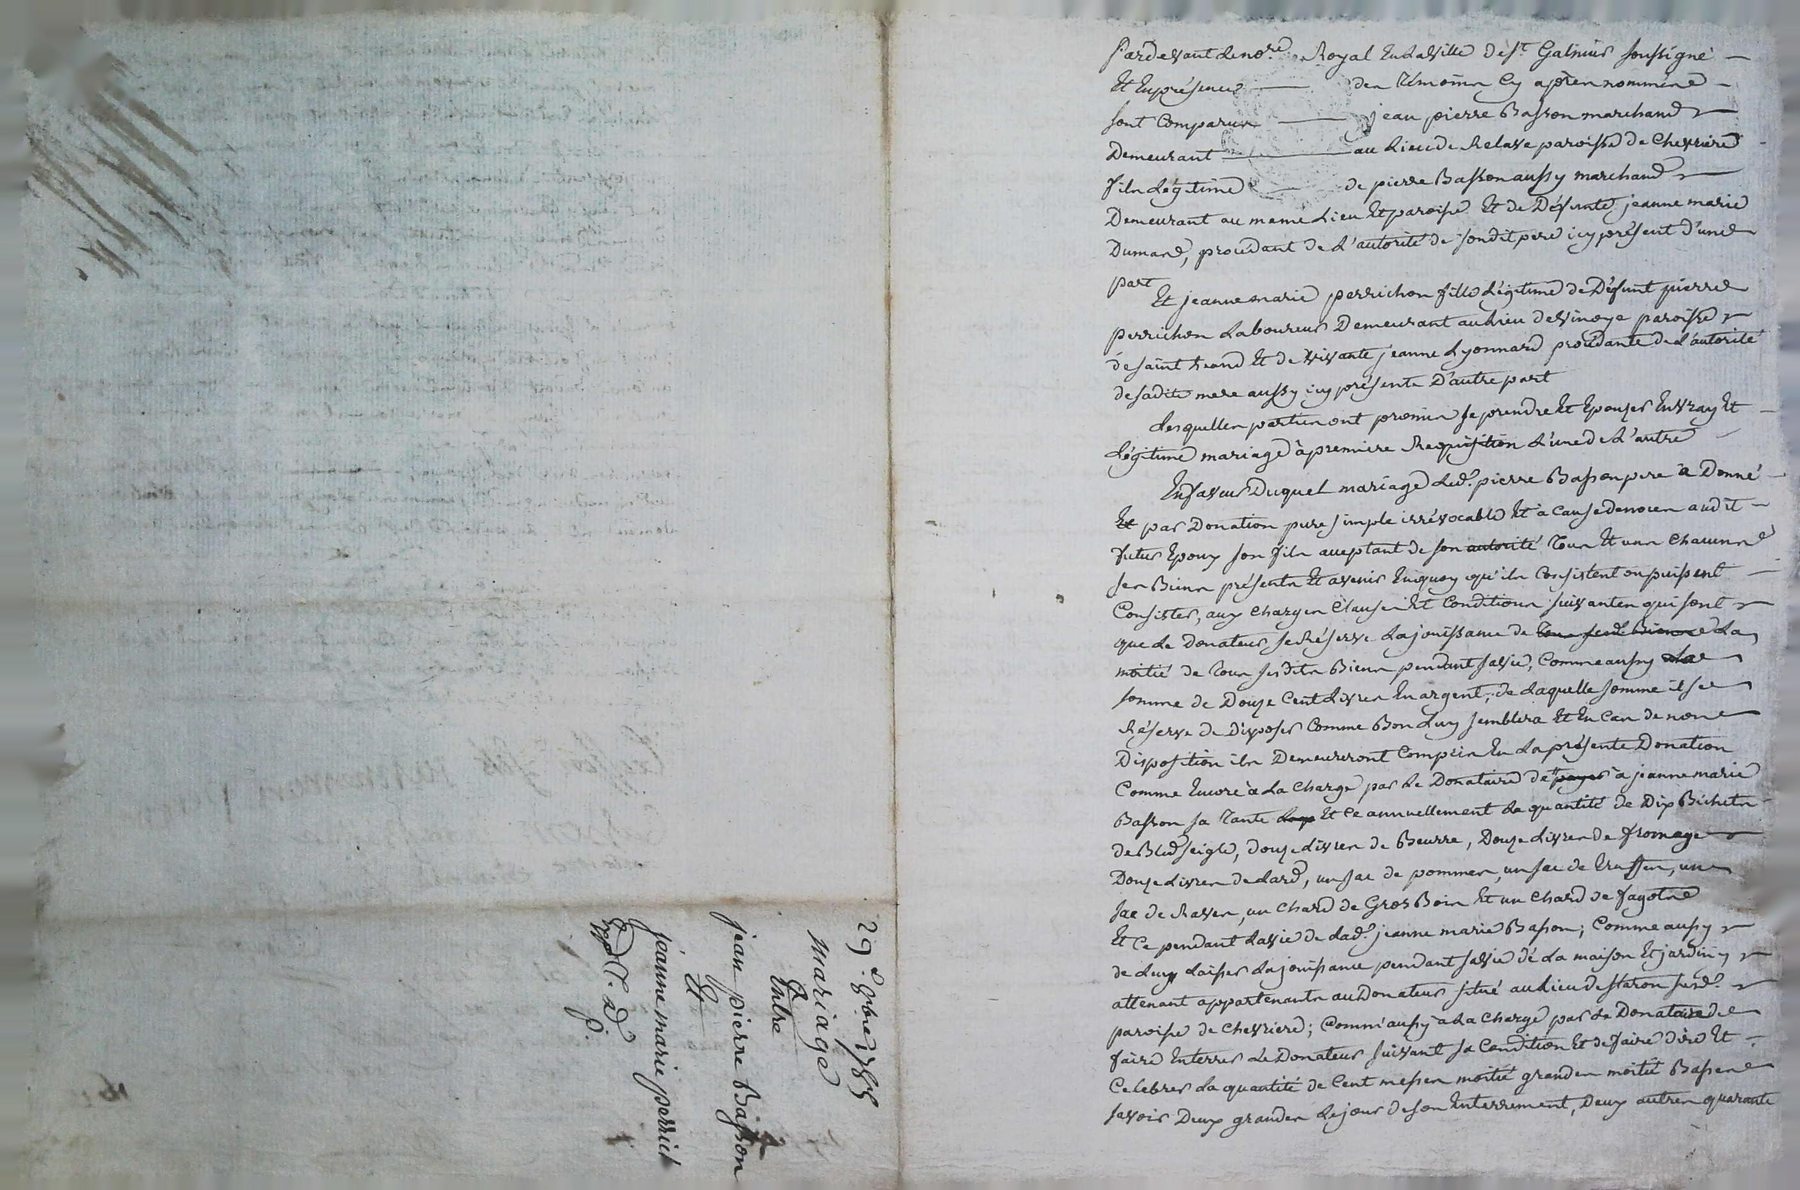 29e. 9bre 1785
Mariage
Entre
jean pierre Basson
Et
jeanne marie perrich
Expd.
Pardevant le nore. Royal En la ville de St. Galmier soussigné
Et En présence des témoins Cy après nommés
sont Comparus jean pierre Basson marchand
Demeurant au Lieu de Relave paroisse de Chevriere
fils légitime de pierre Basson aussy marchand
Demeurant au meme Lieu Et paroisse Et de Défunte jeanne marie
Dumand, procédant de L'autorité de sondit pere icy présent d'une
part
Et jeanne marie perrichon fille Légitime de Défunt pierre
perrichon Laboureur Demeurant au Lieu de paroisse
de saint heand Et de vivante jeanne Lyonnard procédante de L'autorité
de sadite mere aussy icy présente D'autre part
Lesquelles parties ont promis se prendre Et Epouser En vray Et
Légitime mariage à premiere Requisition L'une de L'autre
En faveur Duquel mariage Led. pierre Basson pere a Donné
Et par Donation pure simple irrévocable Et a Cause de noces audit
futur Epoux son fils acceptant de son autorité tous Et uns Chacuns
ses Biens présents Et avenir En quoy qu'ils Consistent ou puissent
Consister, aux Charges Clauses Et Conditions suivantes qui sont
que Le Donateur se Réserve La jouissance de tous sesd. Biens La
moitié de tous sesdits Biens pendant sa vie, Comme aussy La
somme de Douze Cent Livres En argent, de Laquelle somme il se
Réserve de Disposer Comme Bon Luy semblera Et En Cas de none
Disposition ils Demeureront Compris En La présente Donation
Comme Encore à La Charge par Le Donataire de payer à jeanne marie
Basson sa tante Et Ce annuellement La quantité de Dix Bichets
de Bled seigle, douze Livres de Beurre, Douze Livres de fromage
Douze Livres de Lard, un sac de pommes, un sac de truffes, un
sac de Raves, un Chard de Gros Bois Et un Chard de fagots
Et Ce pendant La vie de Lad. jeanne marie Basson; Comme aussy
de Luy Laisser La jouissance pendant sa vie de La maison Et jardin y
attenant appartenants au Donateur situé au Lieu de susd.
paroisse de Chevriere; Comm'aussy à La Charge par Le Donataire de
faire Enterrer Le Donateur suivant sa Condition Et de faire dire Et
Celebrer La quantité de Cent messes moitié grandes moitié Basses
savoir Deux grandes Le jour de son Enterrement, Deux autres quarante